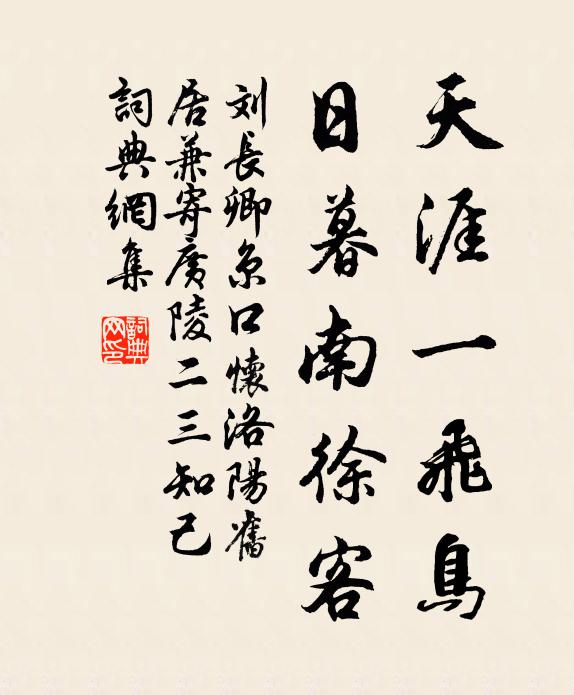 天涯一飛鳥
日暮南徐客
刘長卿京口懷洛陽舊
居兼寄廣陵二三知己
詞典網集
詞典
网印